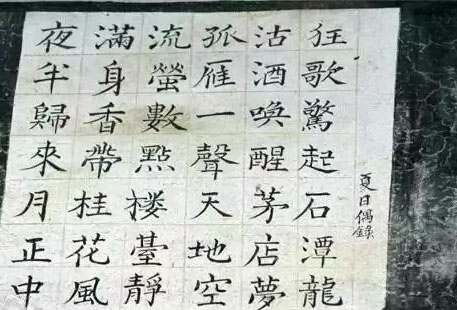 夜半歸來月正中
滿身香帶桂花風
流螢數點楼臺靜
孤雁一聲天地空
沽酒喚醒茅店夢
狂歌驚起石潭龍
夏日偶錄